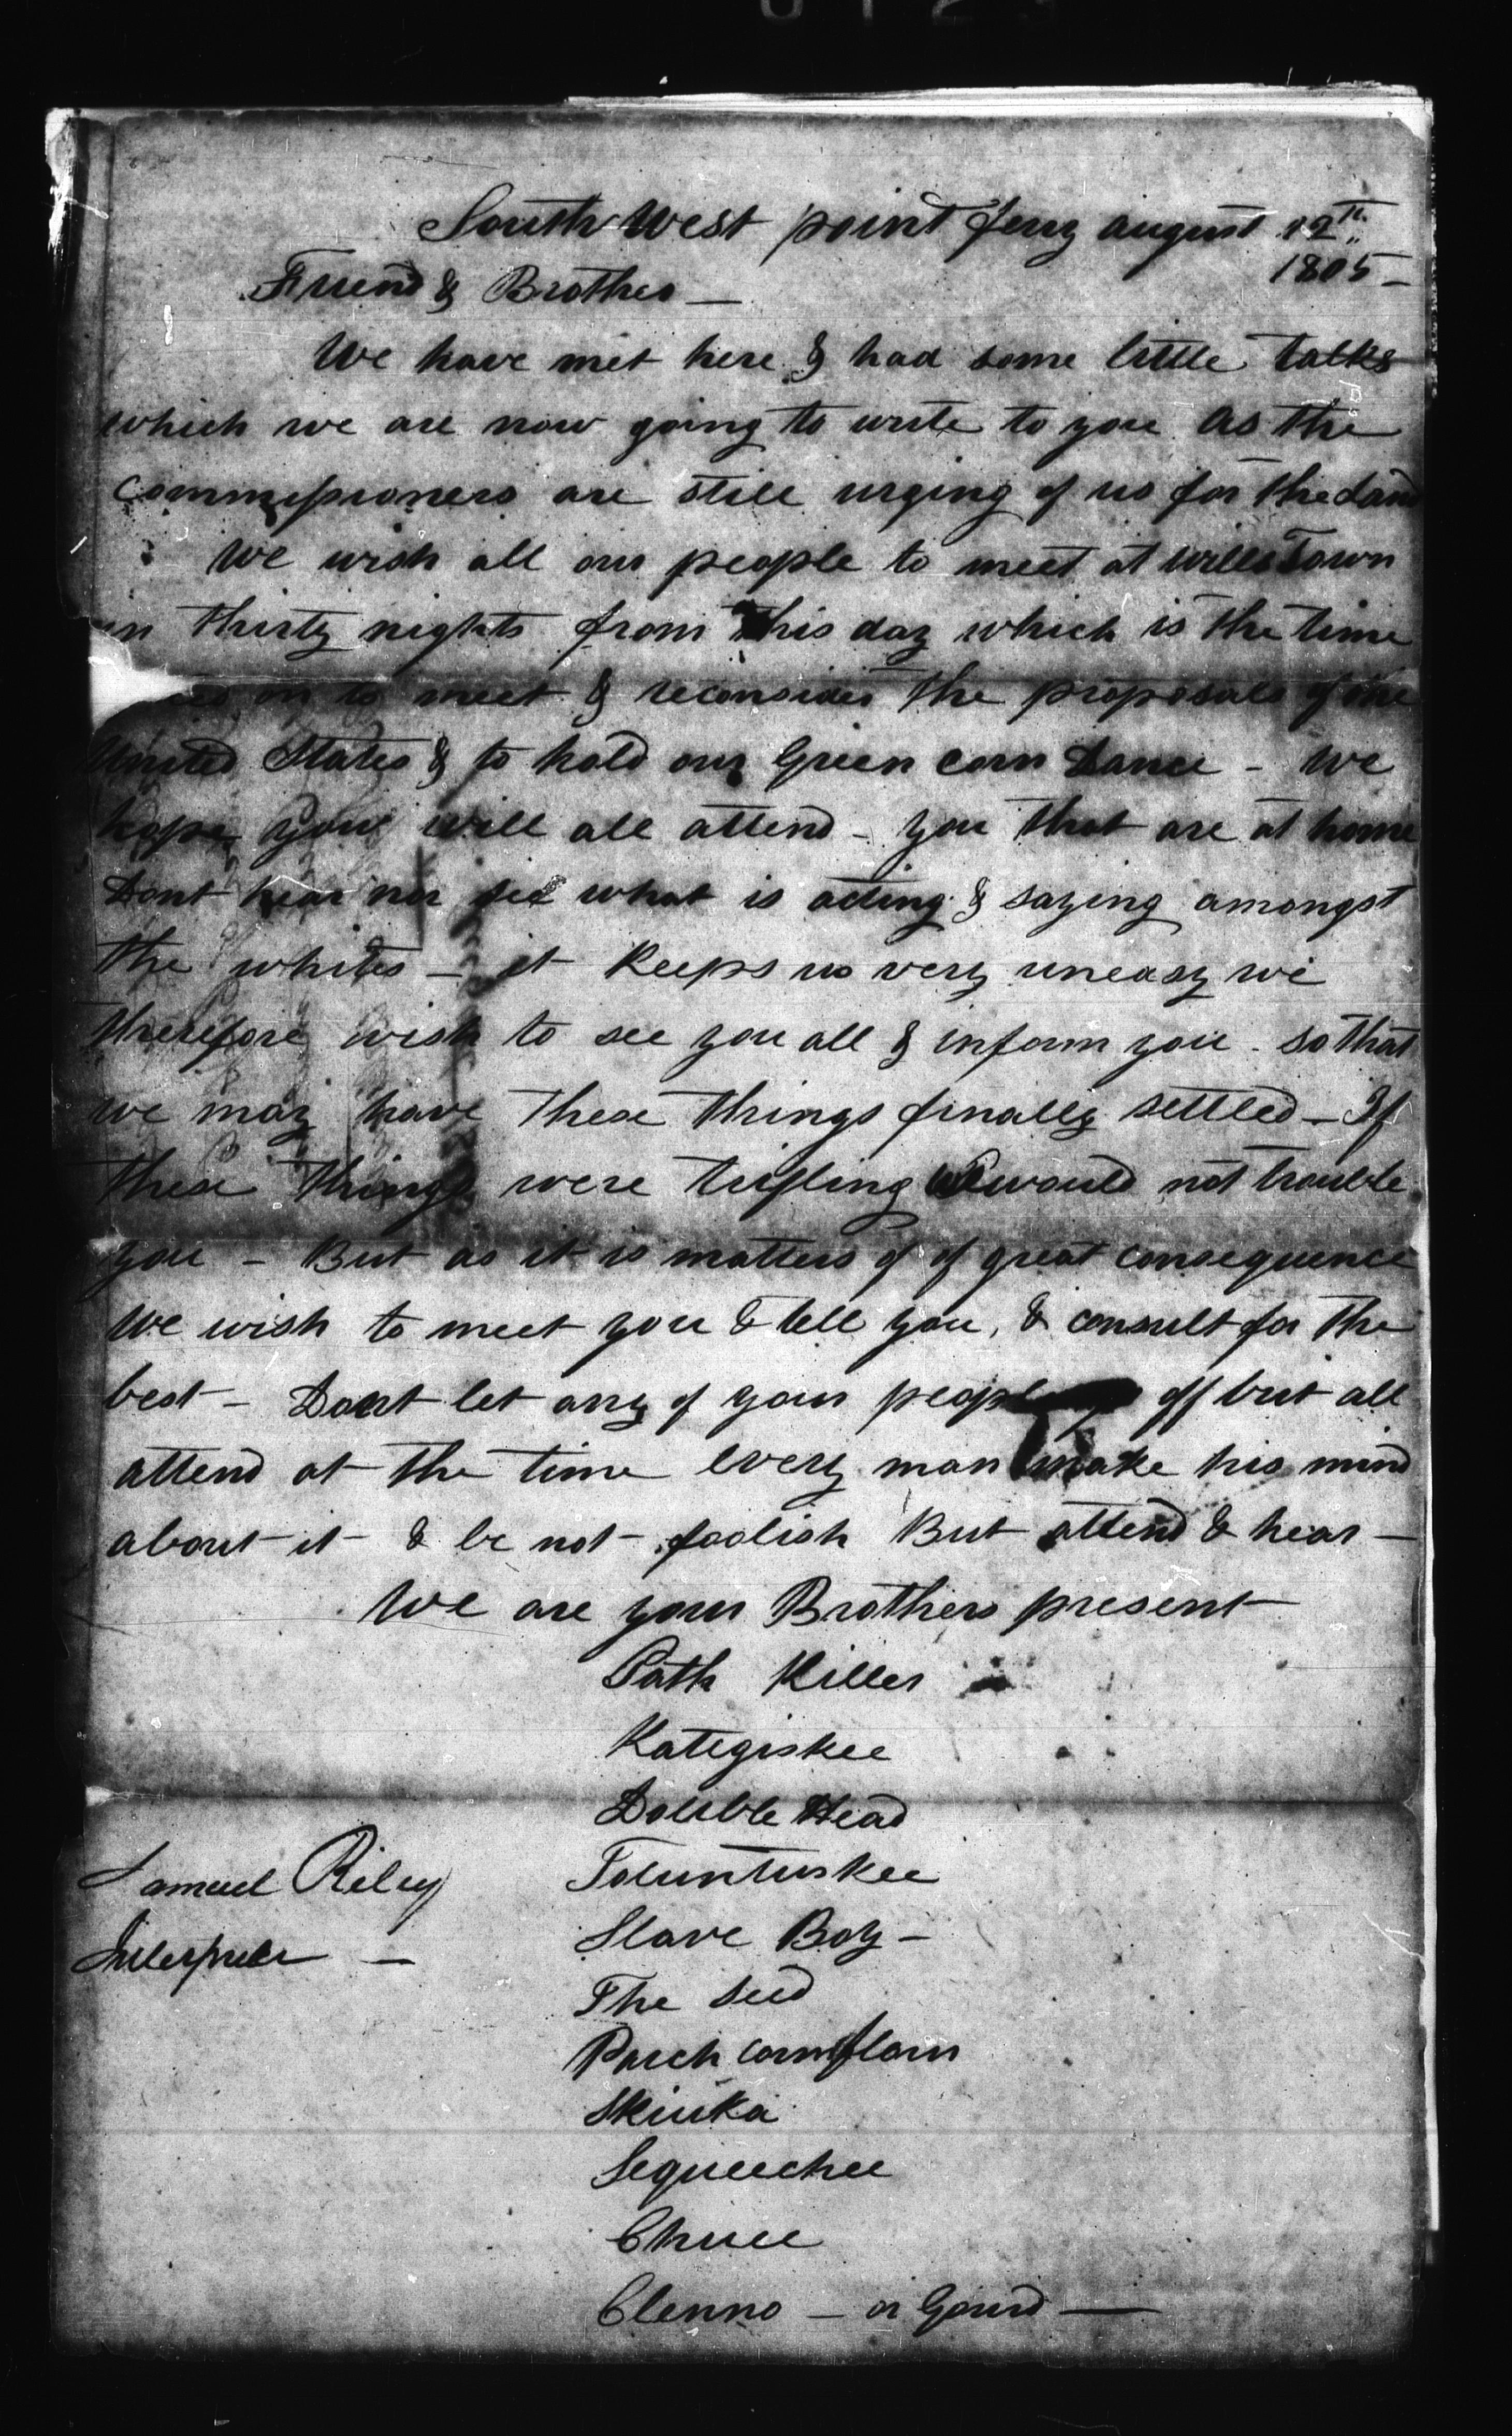 South West point ferry august 12th
1805 –
Friend & Brothers –
We have met here & had some little talks
which we are now going to write to you as the
Commissioners are still urging of us for the Land
We wish all our people to meet at Wills Town
in thirty nights from this day which is the time
on to meet & reconsider the proposals of the
United States & to hold our Green corn Dance – we
hope you will all attend – you that are at home
Dont hear nor see what is acting & saying amongst
the whites – it Keeps us very uneasy we
therefore wish to see you all & inform you so that
we may have these things finally settled – If
these things were trifling we would not trouble
you – But as it is matters of of great consequence
We wish to meet you & tell you, & consult for the
best – Dont let any of your people off but all
attend at the time every man make his mind
about it & be not foolish But attend & hear –
We are your Brothers present
Path Killer
Kategiskee
Double Head
Toluntuskee
Samuel Riley
Slave Boy –
Interpreter –
The seed
Parch corn flour
Skiuka
Sequeechee
Chuee
Clenno – or Gourd –